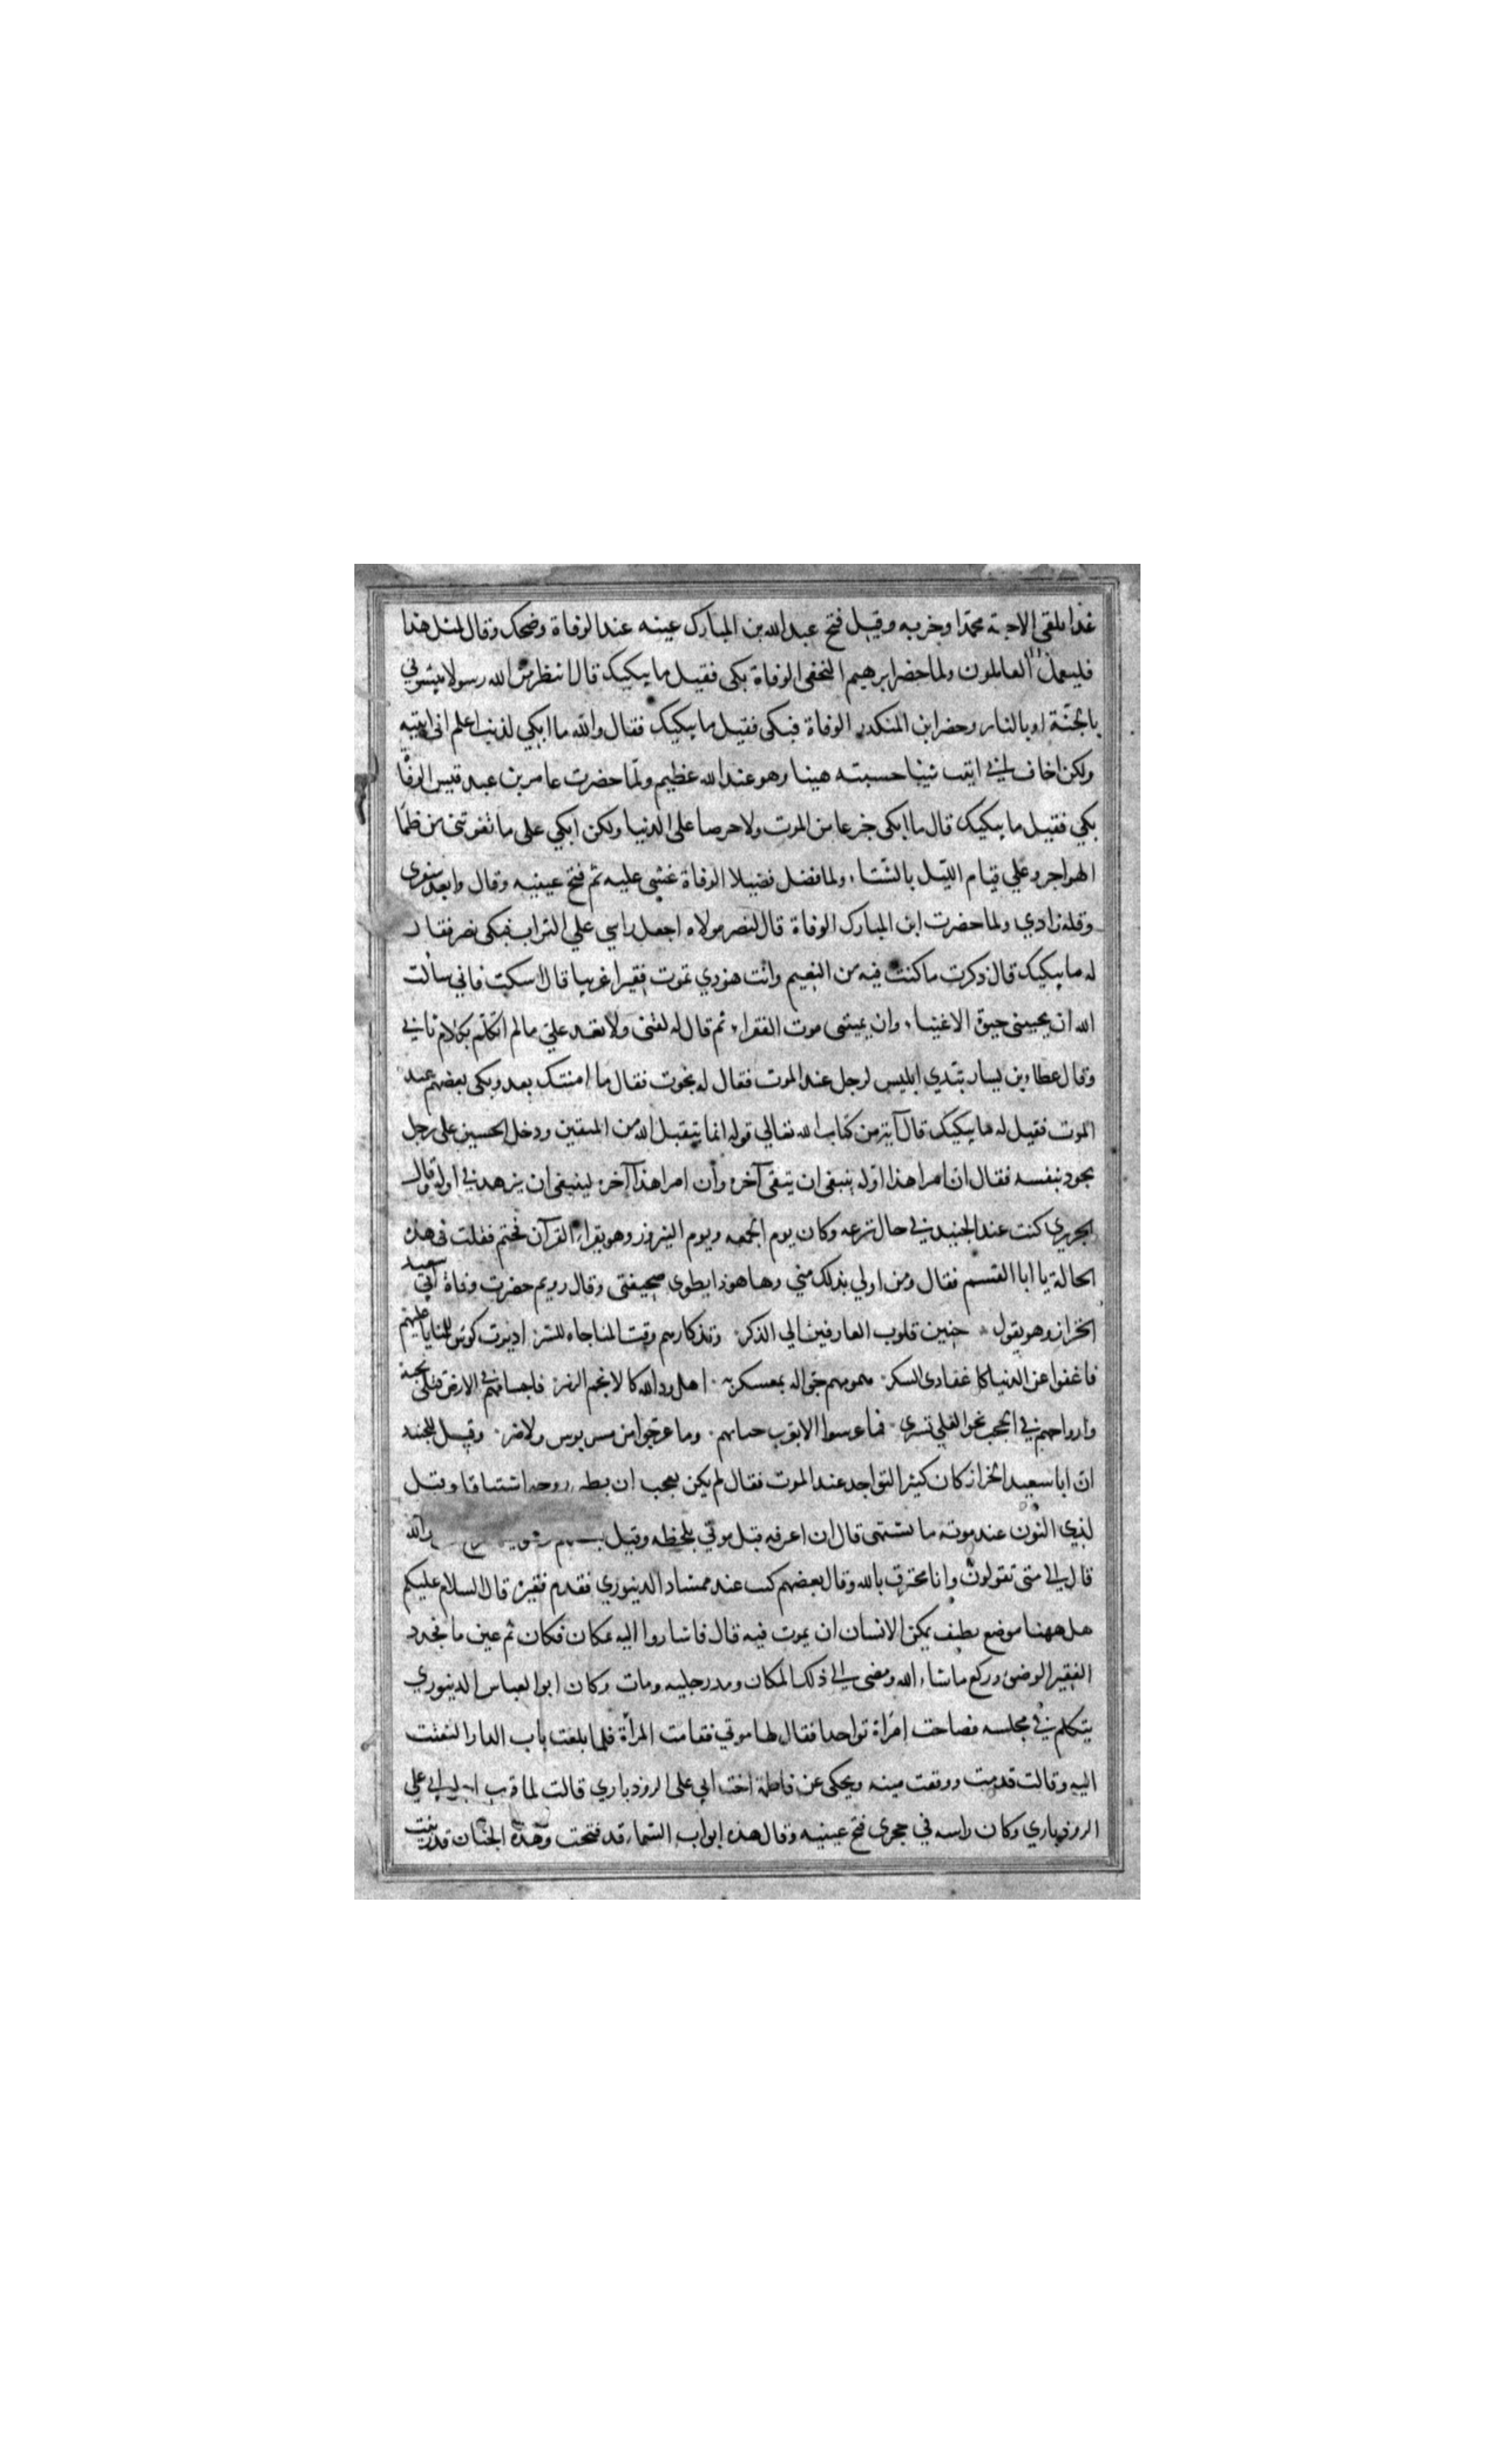 غدا نلقى الاحبة محمدا وحزبه وقيل فتح عبد الله بن المبارك عينه عند الوفاة وضحك وقال لمثل هذا
فليعمل العاملون ولما حضر ابرهيم النخعى الوفاة بكى فقيل ما يبكيك قال انتظر من الله رسولا يبشرني
بالجنة او بالنار وحضر ابن المنكدر الوفاة فبكى فقيل ما يبكيك فقال والله ما ابكي لذنب اعلم انى اتيته
ولكن اخاف اني اتيت شيئا حسبته هينا وهو عند الله عظيم ولما حضرت عامر بن عبد قيس الوفاة
بكي فقيل ما يبكيك قال ما ابكى جزعا من الموت ولا حرصا على الدنيا ولكن ابكي على ما تفوتنى من ظمأ
الهواجر وعلي قيام الليل بالشتاء ولما فضيلا الوفاة غشى عليه ثم فتح عينيه وقال وابعد سفرى
وقلة زادي ولما حضرت ابن المبارك الوفاة قال لنصر مولاه اجعل راسي علي التراب فبكى نصر فقال
له ما يبكيك قال ذكرت ما كنت فيه من النعيم وانت هوذي تموت فقيرا غريبا قال اسكت فاني سألت
الله ان يحييني حيوة الاغنياء وان يميتنى موت الفقراء ثم قال له لقنى ولا تعد علي ما لم اتكلم بكلام ثاني
وقال عطاء بن يسار تبدي ابليس لرجل عند الموت فقال له نجوت فقال ما امنتك بعد وبكى بعضهم عند
الموت فقيل له ما يبكيك قال آية من كتاب الله تعالي قوله انما يتقبل الله من المتقين ودخل الحسين على رجل
يجود بنفسه فقال ان امرا هذا اوله ينبغى ان يتقى آخره وان امرا هذا آخره لينبغى ان يزهد في اوله وقال
الجريري كنت عند الجنيد في حال نزعه وكان يوم الجمعه ويوم النيروز وهو يقراء القرآن فختم فقلت فى هذه
الحالة يا ابا القسم فقال ومن اولي بذلك مني وها هو ذا يطوى صحيفتى وقال رويم حضرت وفاة ابي سعيد
الخراز وهو يقول حنين قلوب العارفين الي الذكر وتذكارهم وقت المناجاه للسر اديرت كوس للمنايا عليهم
فاغفوا عن الدنيا كاغفا ذى السكر همومهم جواله بمعسكر به اهل ود الله كالانجم الزهر فاجسامهم في الارض قتلى بحبه
وارواحهم في الحجب نحو العلي تسرى فما عرسوا الا بقرب حبيبهم وما عرجوا من مس بوس ولا ضر وقيل للجنيد
ان ابا سعيد الخراز كان كثير التواجد عند الموت فقال لم يكن بعجب ان روحه اشتياقا وقيل
لذي النون عند موته ما تشتهى قال ان اعرفه قبل موتي بلحظه وقيل الله
قال الي متى تقولون وانا محترق بالله وقال بعضهم كنت عند ممشاد الدينوري فقدم فقير قال السلام عليكم
هل ههنا موضع نظيف يمكن الانسان ان يموت فيه قال فاشاروا اليه بمكان فكان ثم عين ما فجدد
الفقير الوضوء وركع ماشاء الله ومضى الي ذلك المكان ومد رجليه ومات وكان ابو العباس الدينوري
يتكلم في مجلسه فصاحت امرأة تواجدا فقال لها موتي فقامت المرأة فلما بلغت باب الدار التفتت
اليه وقالت قد مت ووقعت ميته ويحكى عن فاطمة اخت ابي على الروذباري قالت لما قرب اجل ابي علي
الروذباري وكان راسه في حجرى فتح عينيه وقال هذه ابواب السماء قد فتحت وهذه الجنان قد زينت